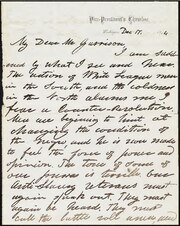 Vice-President's Chamber,
Washington, Dec 17, 4
My Dear Mr Garrison,
I am sad-
ened by what I see and hear.
The action of White Leagues men
in the South, and the coldness
in the North alarms me. I
fear a Counter-Revolution.
Men are beginning to hint at
changing the condition of
the Negro, and he is sure made
to feel the force of power and
opinion. The tone of some of
our press is terrible. Our
Anti Slavery veterans must
again speak out. They must
again be heard. They must
call the battle roll anew and